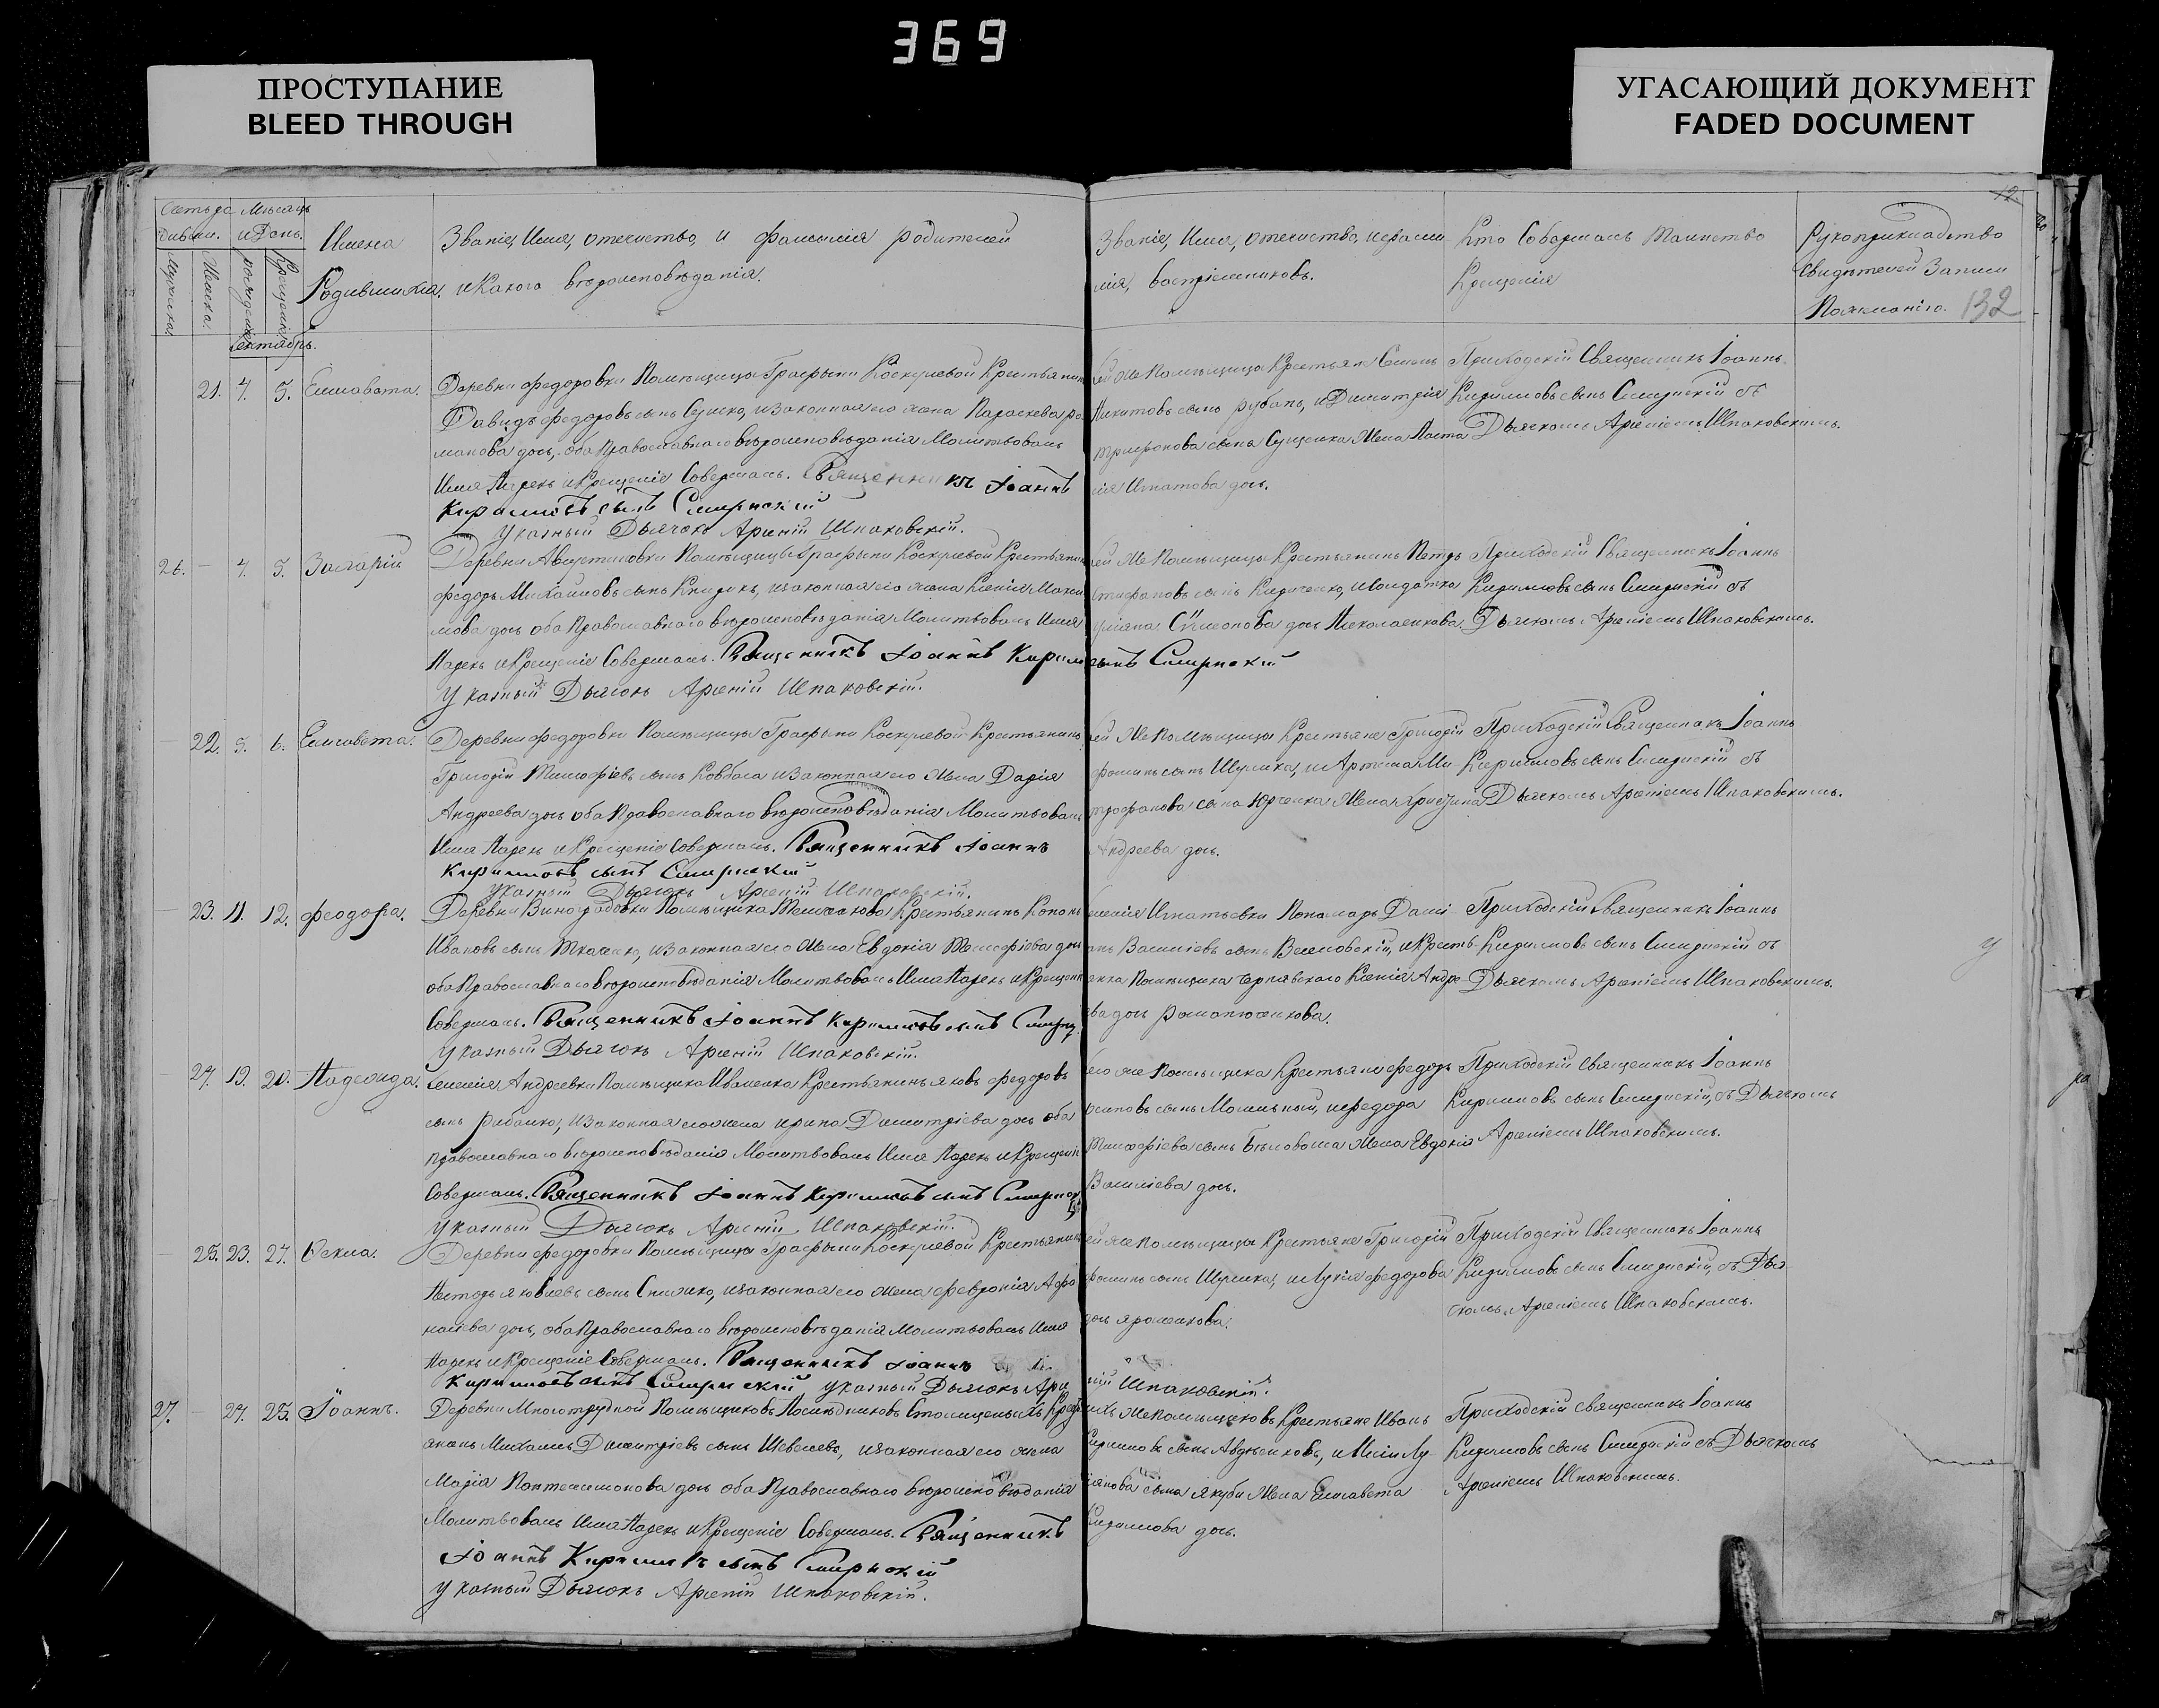 369
ПРОСТУПАНИЕ
BLEED THROUGH
УГАСАЮЩИЙ ДОКУМЕНТ
FADED DOCUMENT
12
Мѣсяцъ
и День.
Имена
Родившихся.
Званіе, Имя, отечество, и фамилія родителей
и Какого вѣроисповѣданія.
Званіе, Имя, отечество, и фами
лія, воспріемниковъ.
Кто Совершалъ Таинство
Крещенія
Рукоприкладство
Свидѣтелей Записи
По желанію. 132
Сентябрь.
21. 4. 5. Елисавета.
Деревни Федоровки Помѣщицы Графыни Крестьянинъ
Давидъ Федоровъ сынъ и законная его жена Параскева Ро
манова дочь, оба Православнаго вѣроисповѣданія Молитвовалъ
Имя Нарекъ и Крещеніе Совершалъ. Священникъ Іоаннъ
Кирилловъ сынъ Смирнскій
Указный Дьячокъ Арсеній Шпаковскій.
той же Помѣщицы Крестьяне
Никитовъ сынъ Рубанъ, и Димитрія
сына Сущенка Жена Наста
сія Игнатова дочь.
Приходскій Священникъ Іоаннъ
Кирилловъ сынъ Смирнскій съ
Дьячкомъ Арсеніемъ Шпаковскимъ.
26. — 4. 5. Захарій
Деревни Августиновки Помѣщицы Графыни Крестьянинъ
Федоръ Михайловъ сынъ и законная его жена Ксенія Макси
мова дочь оба Православнаго вѣроисповѣданія Молитвовалъ Имя
Нарекъ и Крещеніе Совершалъ. Священникъ Іоаннъ Кирил
сынъ Смирнскій
Указный Дьячокъ Арсеній Шпаковскій.
той же Помѣщицы Крестьянинъ Петръ
Стефановъ сынъ Кириченко, и солдатка
Сѵмеонова дочь Николаенкова.
Приходскій Священникъ Іоаннъ
Кирилловъ сынъ Смирнскій съ
Дьячкомъ Арсеніемъ Шпаковскимъ.
— 22. 5. 6. Елисавета.
Деревни Федоровки Помѣщицы Графыни Крестьянинъ
Григорій Тимофіевъ сынъ Ковбаса и законная его Жена Дарія
Андреева дочь оба Православнаго вѣроисповѣданія Молитвовалъ
Имя Нарекъ и Крещеніе Совершалъ. Священникъ Іоаннъ
Кирилловъ сынъ Смирнскій
Указный Дьячокъ Арсеній Шпаковскій.
той же Помѣщицы Крестьяне Григорій
Фоминъ сынъ Шулика, и Артема Ми
трофанова сына Юрченка Жена Христина
Андреева дочь.
Приходскій Священникъ Іоаннъ
Кирилловъ сынъ Смирнскій съ
Дьячкомъ Арсеніемъ Шпаковскимъ.
— 23. 11. 12. Феодора.
Деревни Виноградовки Помѣщика Крестьянинъ Кононъ
Ивановъ сынъ Ткаченко, и законная его Жена Евдокія Тимофіева дочь
оба Православнаго вѣроисповѣданія Молитвовалъ Имя Нарекъ и Крещеніе
Совершалъ. Священникъ Іоаннъ Кирилловъ сынъ Смирнс
Указный Дьячокъ Арсеній Шпаковскій.
селенія Игнатьевки Пономарь Дамі
анъ Василіевъ сынъ и Кресть
янка Помѣщика Чернявскаго Ксенія Андре
ева дочь Романюченкова.
Приходскій Священникъ Іоаннъ
Кирилловъ сынъ Смирнскій съ
Дьячкомъ Арсеніемъ Шпаковскимъ.
— 24. 19. 20. Надежда.
Селенія Андреевки Помѣщика Иваненка Крестьянинъ Яковъ Федоровъ
сынъ Рибалко, и законная его жена Ирина Димитріева дочь оба
Православнаго вѣроисповѣданія Молитвовалъ Имя Нарекъ и Крещеніе
Совершалъ. Священникъ Іоаннъ Кирилловъ сынъ Смирнскій
Указный Дьячокъ Арсеній Шпаковскій.
того же Помѣщика Крестьяне Федоръ
Осиповъ сынъ и Федора
Тимофіева сына Жена Евдокія
Василіева дочь.
Приходскій Священникъ Іоаннъ
Кирилловъ сынъ Смирнскій, съ Дьячкомъ
Арсеніемъ Шпаковскимъ.
— 25. 23. 24. Фекла.
Деревни Федоровки Помѣщицы Графыни Крестьянинъ
Несторъ Яковлевъ сынъ и законная его жена Февронія Афа
насіева дочь, оба Православнаго вѣроисповѣданія Молитвовалъ Имя
Нарекъ и Крещеніе Совершалъ. Священникъ Іоаннъ
Кирилловъ сынъ Смирнскій Указный Дьячокъ Арсе
ній Шпаковскій.
той же Помѣщицы Крестьяне Григорій
Фоминъ сынъ Шулика, и Лукія Федорова
дочь Ярошенкова.
Приходскій Священникъ Іоаннъ
Кирилловъ сынъ Смирнскій, съ Дья
чкомъ Арсеніемъ Шпаковскимъ.
27. — 24. 25. Іоаннъ.
Деревни Многотрудной Помѣщиковъ Наслѣдниковъ Кресть
янинъ Михаилъ Димитріевъ сынъ и законная его жена
Марія Пантелимонова дочь оба Православнаго вѣроисповѣданія
Молитвовалъ Имя Нарекъ и Крещеніе Совершалъ. Священникъ
Іоаннъ Кирилловъ сынъ Смирнскій
Указный Дьячокъ Арсеній Шпаковскій.
тѣхъ же Помѣщиковъ Крестьяне Иванъ
Кирилловъ сынъ
сына Якуби Жена Елисавета
Кириллова дочь.
Приходскій Священникъ Іоаннъ
Кирилловъ сынъ Смирнскій съ Дьячкомъ
Арсеніемъ Шпаковскимъ.